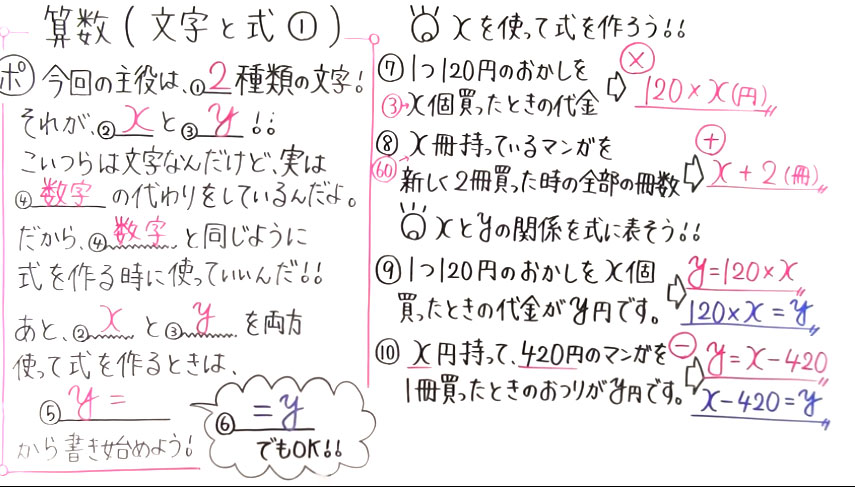 算数(文字と式①)
ポ 今回の主役は、①2種類の文字!
それが、②xと③y!!
こいつらは文字なんだけど、実は
④数字の代わりをしているんだよ。
だから、④数字と同じように
式を作る時に使っていいんだ!!
あと、②xと③yを両方
使って式を作るときは、
⑤y=
から書き始めよう!
⑥=y
でもOK!!
xを使って式を作ろう!!
⑦1つ120円のおかしを
③→x個買ったときの代金
⇨ × 120×x(円)
⑧x冊持っているマンガを
60 新しく2冊買った時の全部の冊数
⇨ + x+2(冊)
xとyの関係を式に表そう!!
⑨1つ120円のおかしをx個
買ったときの代金がy円です。
⇨ y=120×x
120×x=y
⑩x円持って、420円のマンガを
1冊買ったときのおつりがy円です。
⇨ − y=x−420
x−420=y